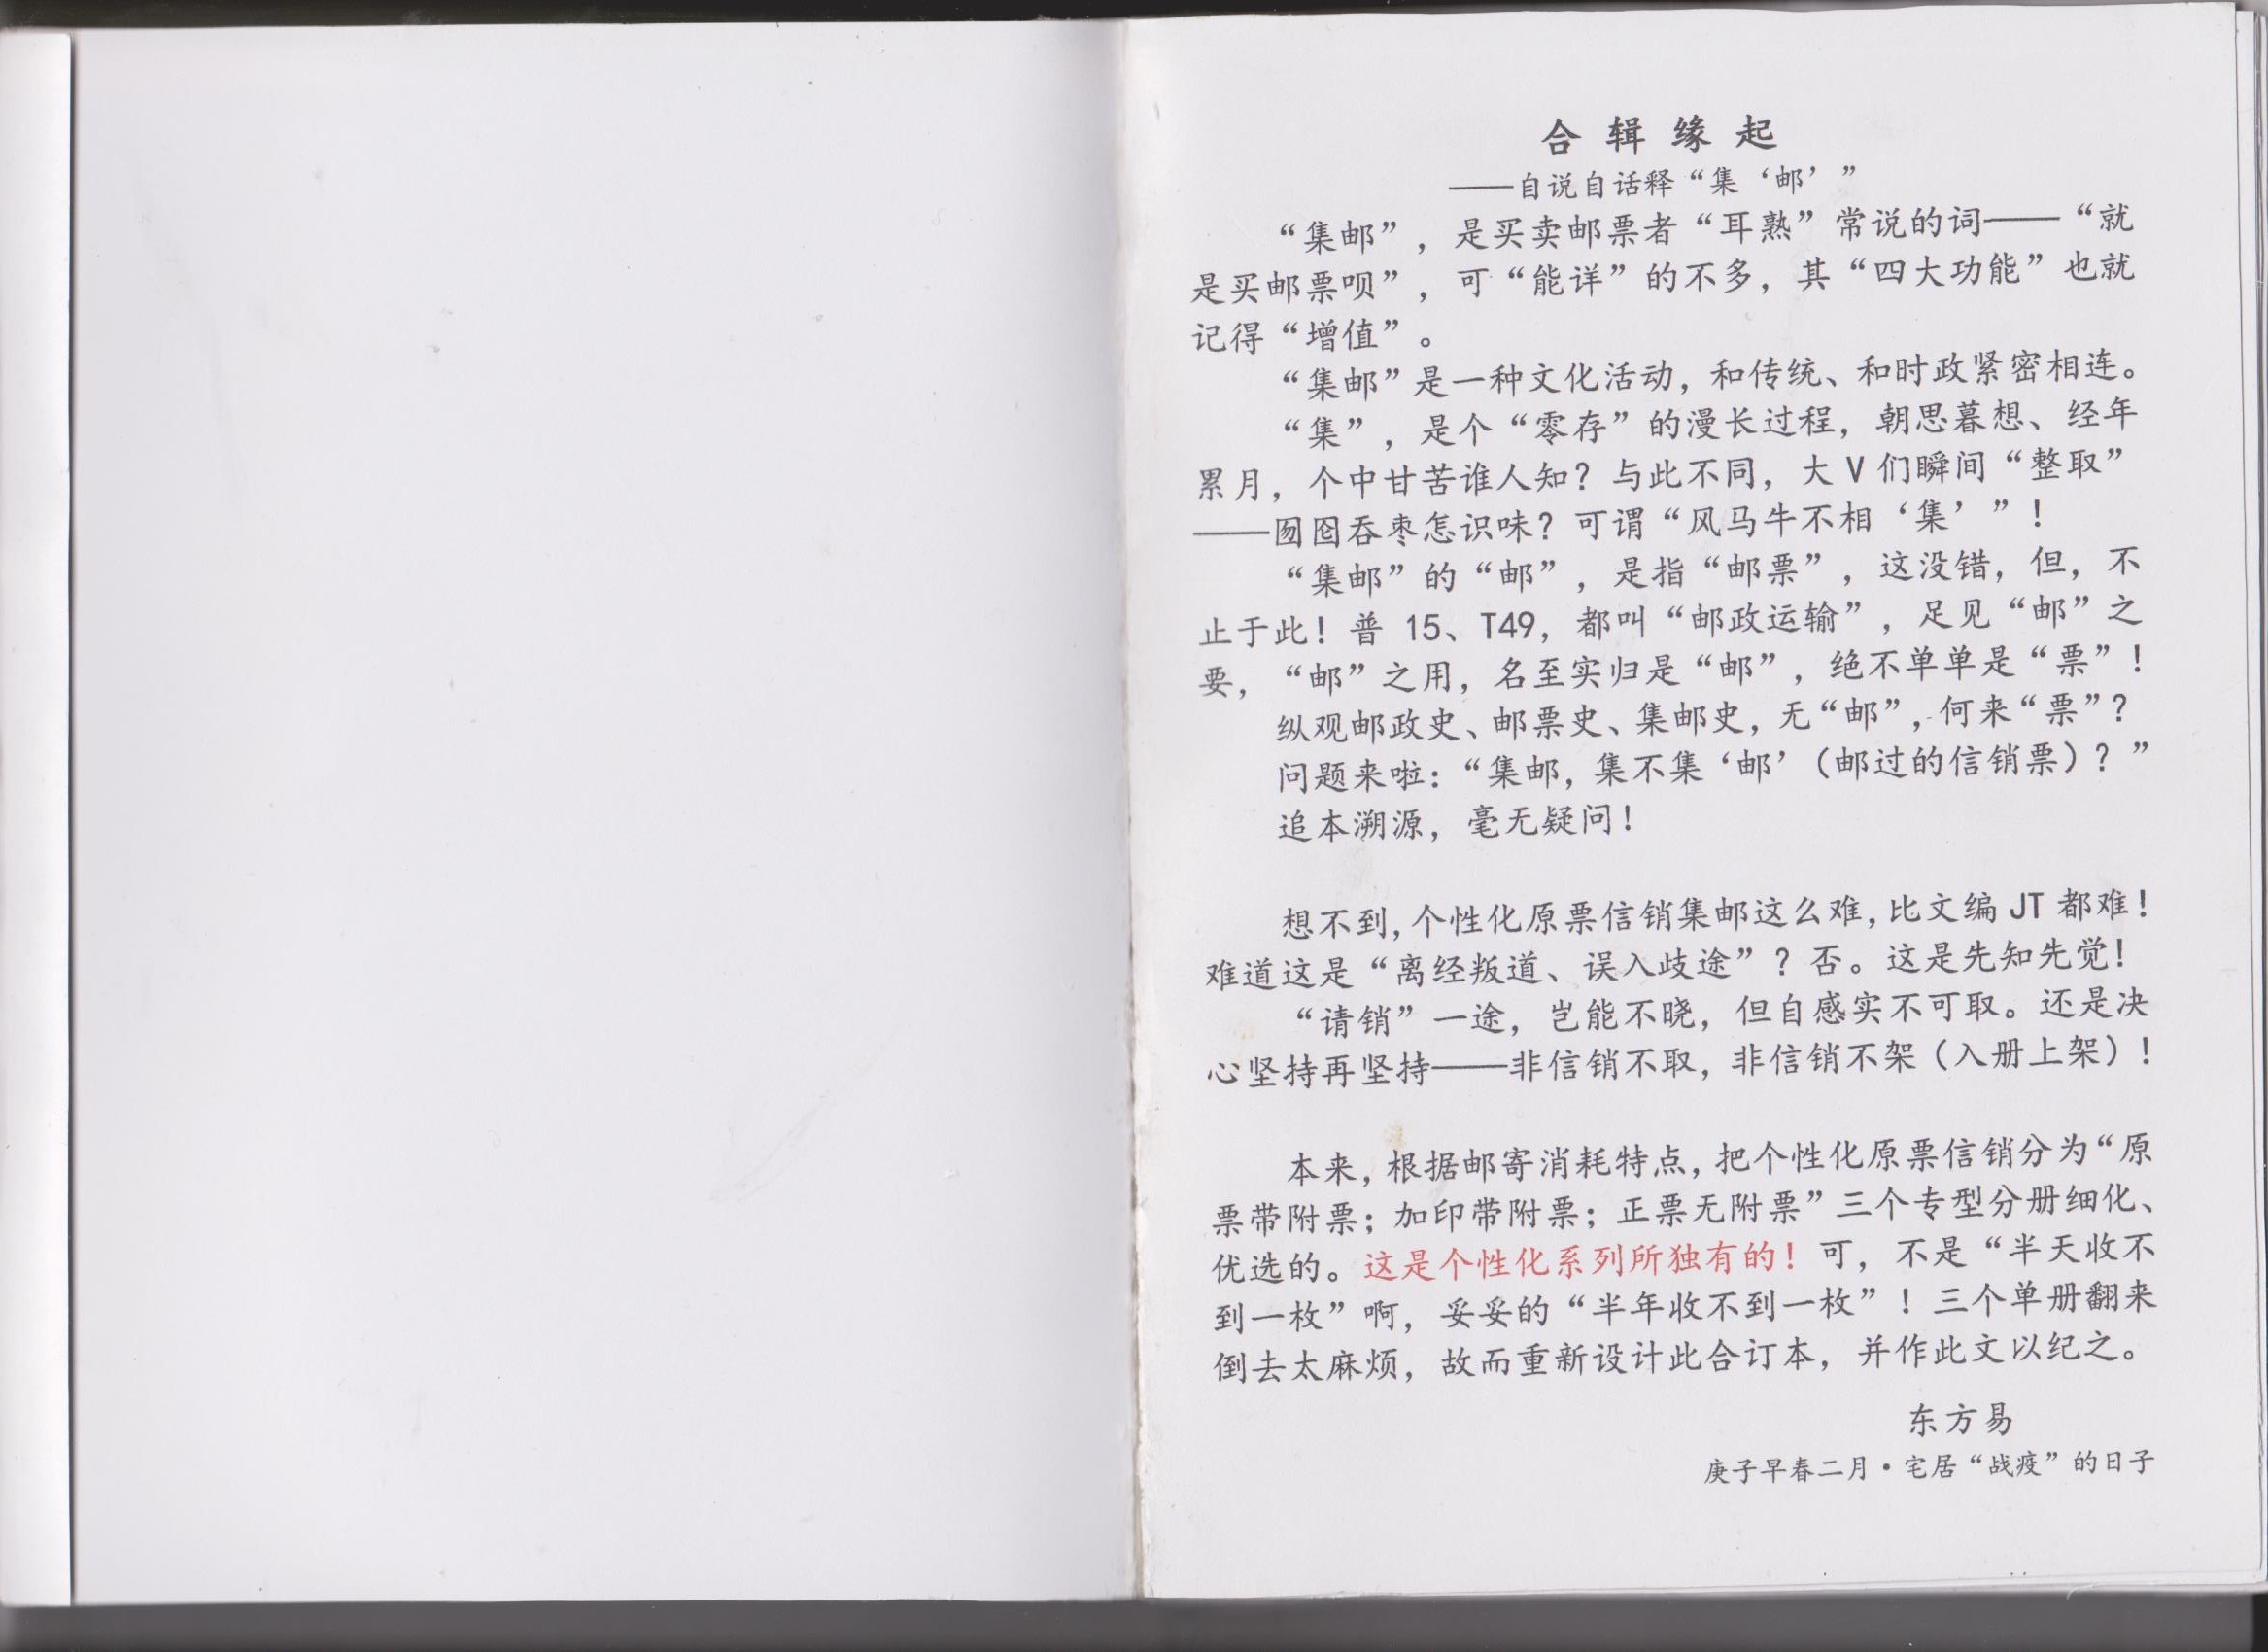 合辑缘起
——自说自话释“集‘邮’”
“集邮”，是买卖邮票者“耳熟”常说的词——“就
是买邮票呗”，可“能详”的不多，其“四大功能”也就
记得“增值”。
“集邮”是一种文化活动，和传统、和时政紧密相连。
“集”，是个“零存”的漫长过程，朝思暮想、经年
累月，个中甘苦谁人知？与此不同，大V们瞬间“整取”
——囫囵吞枣怎识味？可谓“风马牛不相‘集’”！
“集邮”的“邮”，是指“邮票”，这没错，但，不
止于此！普 15、T49，都叫“邮政运输”，足见“邮”之
要，“邮”之用，名至实归是“邮”，绝不单单是“票”！
纵观邮政史、邮票史、集邮史，无“邮”，何来“票”？
问题来啦：“集邮，集不集‘邮’（邮过的信销票）？”
追本溯源，毫无疑问！
想不到，个性化原票信销集邮这么难，比文编JT都难！
难道这是“离经叛道、误入歧途”？否。这是先知先觉！
“请销”一途，岂能不晓，但自感实不可取。还是决
心坚持再坚持——非信销不取，非信销不架（入册上架）！
本来，根据邮寄消耗特点，把个性化原票信销分为“原
票带附票；加印带附票；正票无附票”三个专型分册细化、
优选的。这是个性化系列所独有的！可，不是“半天收不
到一枚”啊，妥妥的“半年收不到一枚”！三个单册翻来
倒去太麻烦，故而重新设计此合订本，并作此文以纪之。
东方易
庚子早春二月·宅居“战疫”的日子